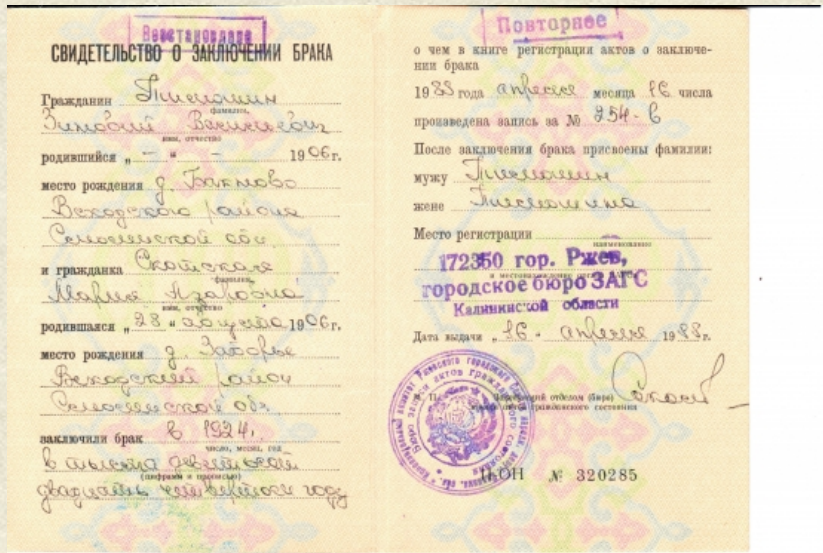 Восстановлено
СВИДЕТЕЛЬСТВО О ЗАКЛЮЧЕНИИ БРАКА
Гражданин Тимошин
фамилия,
Зиновий
имя, отчество
родившийся „ — " — 1906г.
место рождения д.
Всходского района
Смоленской обл.
и гражданка Скотская
фамилия,
Мария Азаровна
имя, отчество
родившаяся „28" августа 1906г.
место рождения д. Заборье
Всходский район
Смоленской обл.
заключили брак в 1924г.
число, месяц, год
в тысяча девятьсот
(цифрами и прописью)
двадцать четвертом году
Повторное
о чем в книге регистрация актов о заключе-
нии брака
1988 года апреля месяца 16 числа
произведена запись за № 254-в
После заключения брака присвоены фамилии:
мужу Тимошин
жене Тимошина
Место регистрации
наименование
172350 гор. Ржев,
городское бюро ЗАГС
Калининской области
Дата выдачи „16" апреля 1988г.
отделом (бюро)
гражданского состояния
II-ОН № 320285